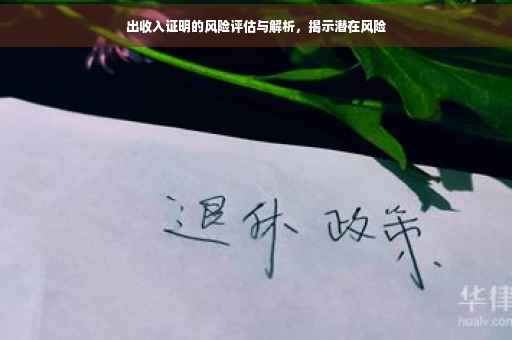 出收入证明的风险评估与解析，揭示潜在风险
退休 政策
华律
hualv.com